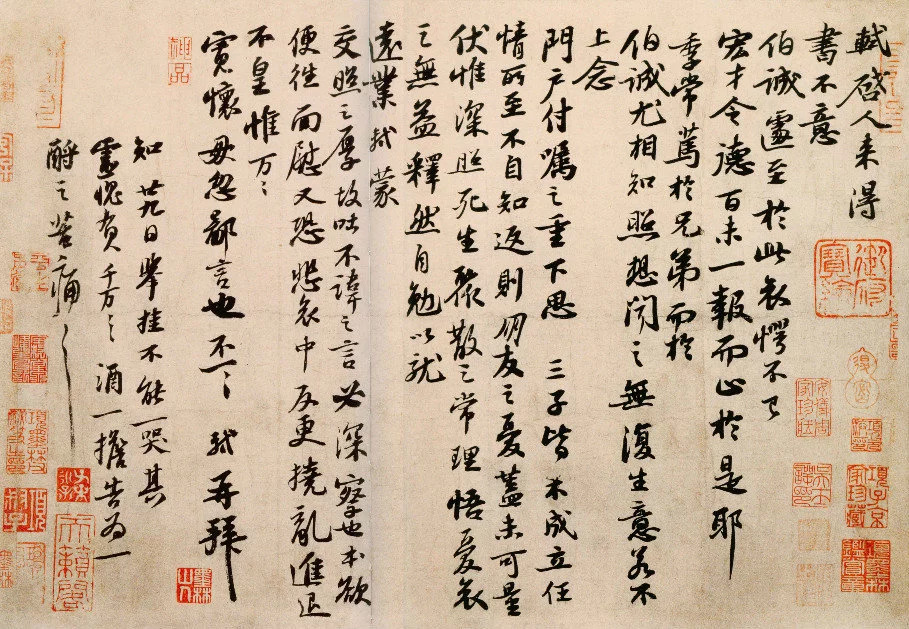 軾啓人來得
書不意
伯誠遽至於此哀愕不已
宏才令德百未一報而止於是耶
季常篤於兄弟而於
伯誠尤相知照想聞之無復生意若不
上念
門户付囑之重下思三子皆未成立任
情所至不自知返則朋友之憂蓋未可量
伏惟深照死生聚散之常理悟憂哀
之無益釋然自勉以就
遠業軾蒙
交照之厚故吐不諱之言必深察也本欲
便往面慰又恐悲哀中反更撓亂進退
不皇惟万〻
寬懷毋忽鄙言也不一〻軾再拜
知廿九日舉挂不能一哭其
靈愧負千万〻酒一擔告爲一
酹之苦痛〻